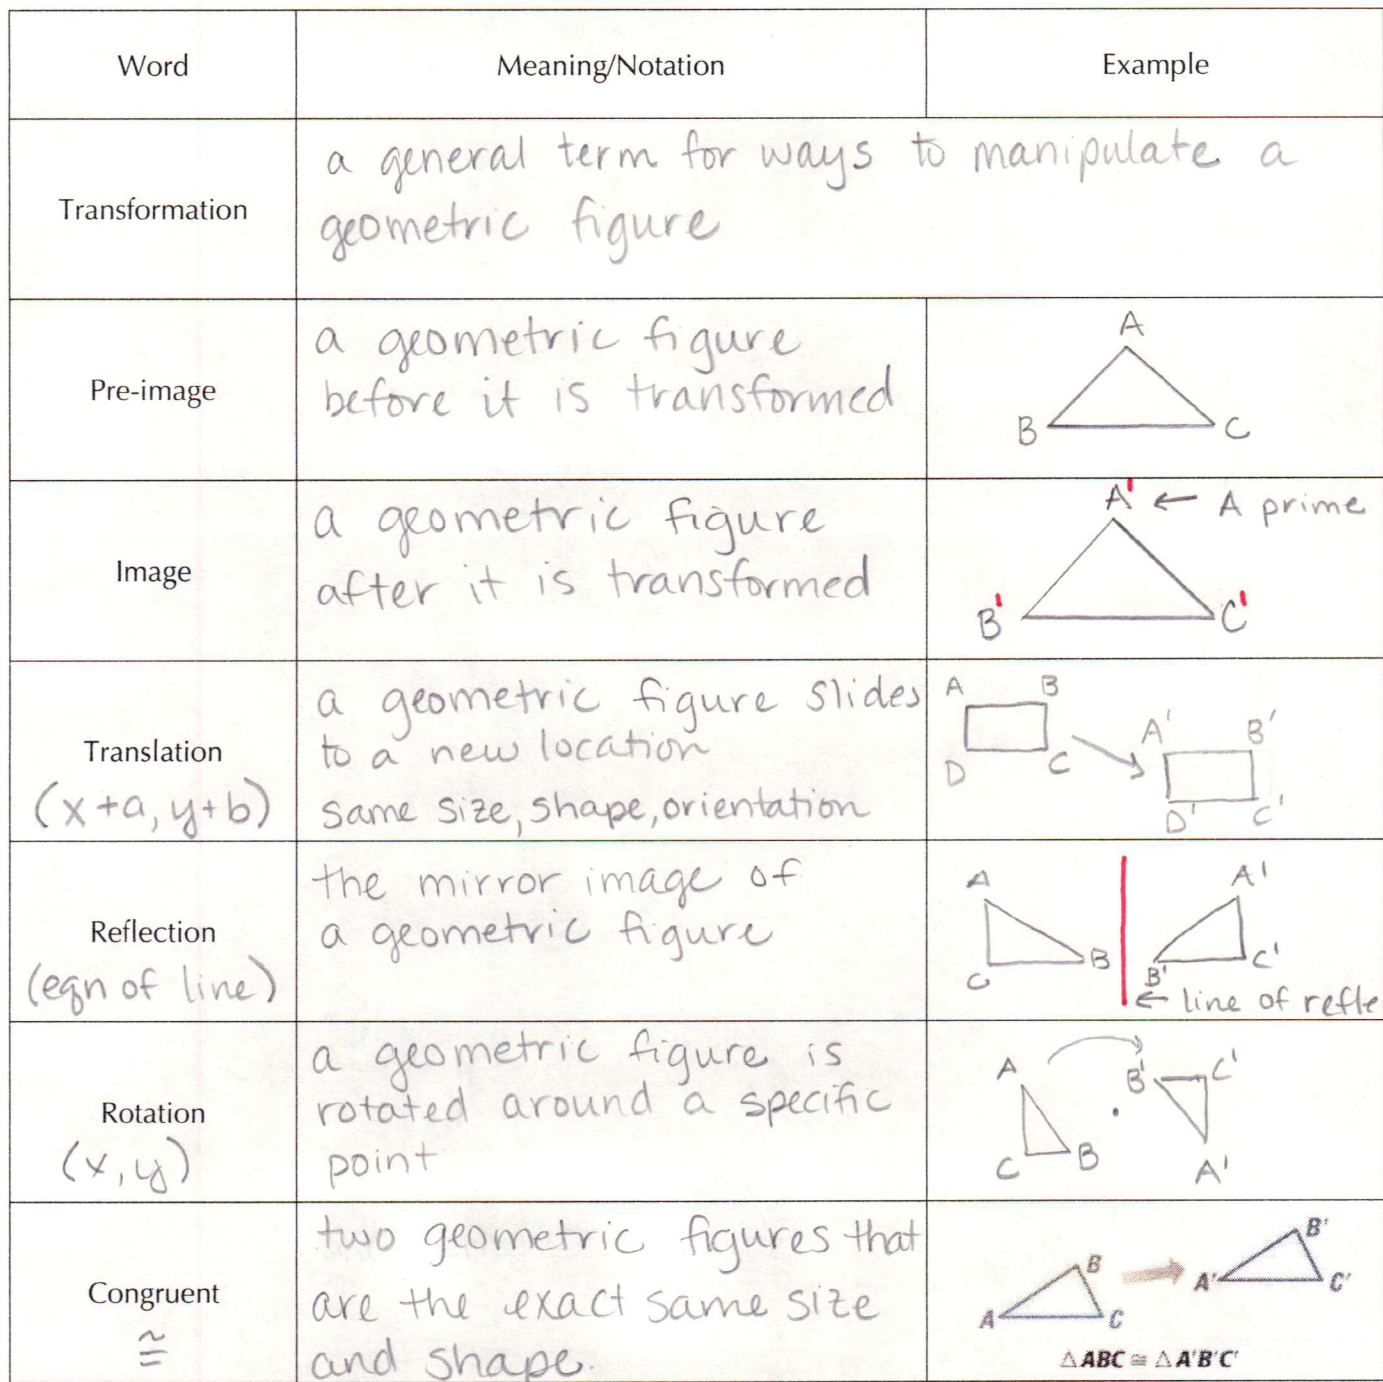 Word
Meaning/Notation
Example
Transformation
a general term for ways to manipulate a
geometric figure
Pre-image
a geometric figure
before it is transformed
A
B
C
Image
a geometric figure
after it is transformed
A' ← A prime
B'
C'
Translation
(x+a, y+b)
a geometric figure slides
to a new location
same size, shape, orientation
A B
D C
A' B'
D' C'
Reflection
(eqn of line)
the mirror image of
a geometric figure
A
C B
A'
B' C'
← line of refle
Rotation
(x, y)
a geometric figure is
rotated around a specific
point
A
C B
B' C'
A'
Congruent
≅
two geometric figures that
are the exact same size
and shape.
B
A C
B'
A' C'
△ABC ≅ △A'B'C'